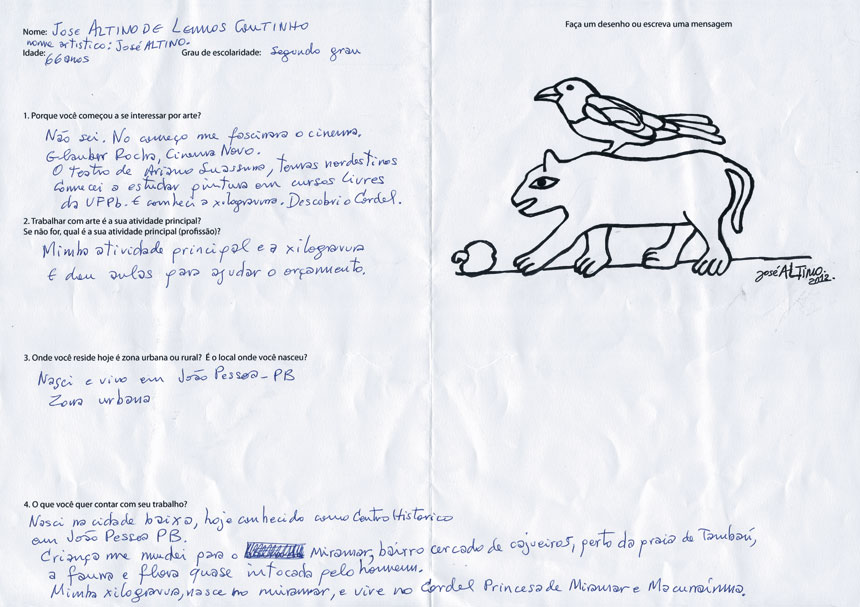 Nome: JOSE ALTINO DE LEMOS COUTINHO
nome artistico: JOSÉ ALTINO.
Idade: 66 anos Grau de escolaridade: Segundo grau
1. Porque você começou a se interessar por arte?
Não sei. No começo me fascinara o cinema.
Glauber Rocha, Cinema Novo.
O teatro de Ariano Suassuna, temas nordestinos
Comecei a estudar pintura em cursos livres
da UFPb. E conheci a xilogravura. Descobri o Cordel.
2. Trabalhar com arte é a sua atividade principal?
Se não for, qual é a sua atividade principal (profissão)?
Minha atividade principal e a xilogravura
E dou aulas para ajudar o orçamento.
3. Onde você reside hoje é zona urbana ou rural? É o local onde você nasceu?
Nasci e vivo em João Pessoa - PB
Zona urbana
4. O que você quer contar com seu trabalho?
Nasci na cidade baixa, hoje conhecido como Centro Historico
em João Pessoa PB.
Criança me mudei para o Miramar, bairro cercado de cajueiros, perto da praia de Tambaú,
a fauna e flora quase intocada pelo homem.
Minha xilogravura, nasce no miramar, e vive no Cordel Princesa de Miramar e Macunaínma.
Faça um desenho ou escreva uma mensagem
José ALTINO.
2012.